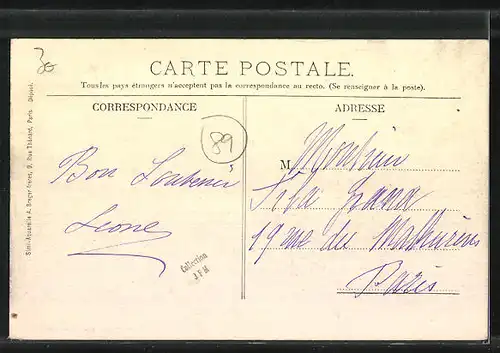 3e
CARTE POSTALE.
Tous les pays étrangers n'acceptent pas la correspondance au recto. (Se renseigner à la poste).
CORRESPONDANCE
ADRESSE
89
Bon Souvenir
Leone
M Monsieur
19 rue des Mathurins
Paris
Collection
J F H
Simi-Aquarelle A. Breger frères, 9, Rue Thénard, Paris Déposé.